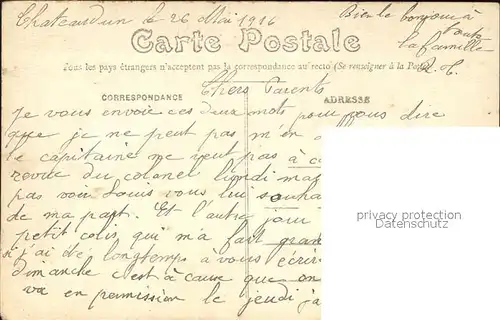 Chateaudun le 26 Mai 1916
Bien le bonjour à
toute
la famille
Carte Postale
Tous les pays étrangers n'acceptent pas la correspondance au recto (Se renseigner à la Poste)
Chers Parents
CORRESPONDANCE
ADRESSE
Je vous envoie ces deux mots pour vous dire
que je ne peut pas m'en
le capitaine me veut pas à
revue du colonel lundi
pas voir Louis vous lui
de ma part. Et l'autre jour
petit colis, qui m'a fait
si j'ai été longtemps à vous
dimanche c'est à cause que on
va en permission le jeudi
privacy protection
Datenschutz